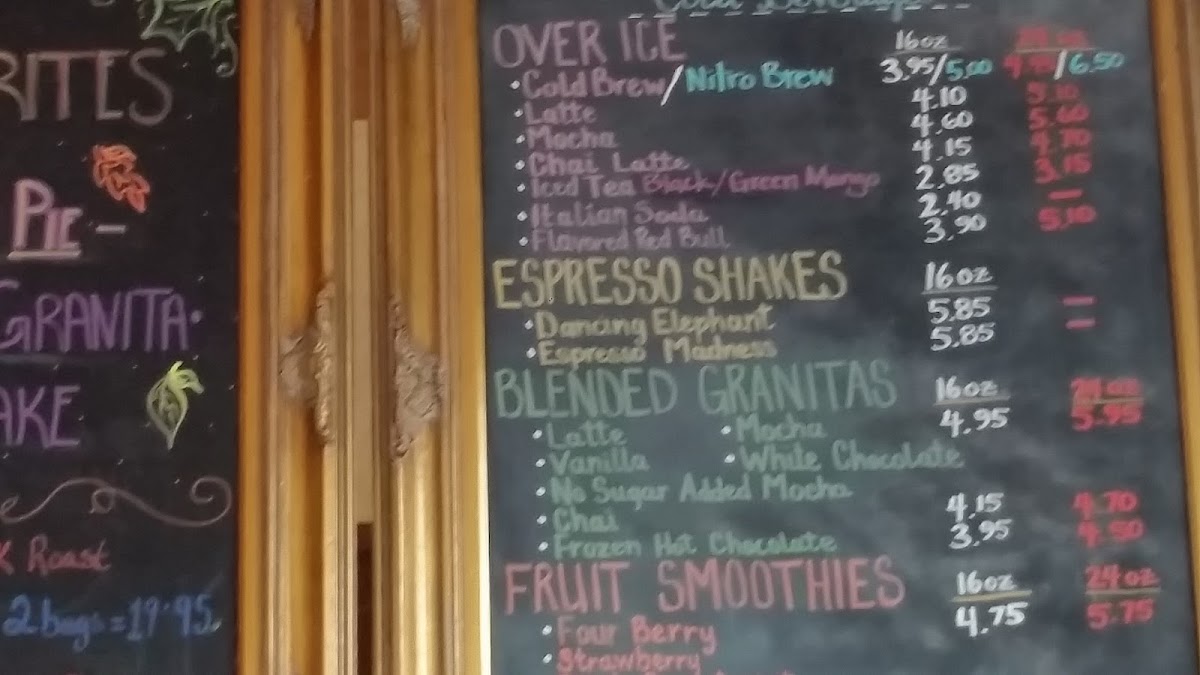 RITES
PIE -
GRANITA·
AKE
K Roast
2 bags = 19.95
Cold Beverages
OVER ICE 16oz 24oz
• Cold Brew/Nitro Brew 3.95/5.00 4.95/6.50
• Latte 4.10 5.10
• Mocha 4.60 5.60
• Chai Latte 4.15 4.70
• Iced Tea Black/Green Mango 2.85 3.15
• Italian Soda 2.40 —
• Flavored Red Bull 3.90 5.10
ESPRESSO SHAKES 16oz
• Dancing Elephant 5.85 —
• Espresso Madness 5.85 —
BLENDED GRANITAS 16oz 24oz
• Latte • Mocha 4.95 5.95
• Vanilla • White Chocolate
• No Sugar Added Mocha
• Chai 4.15 4.70
• Frozen Hot Chocolate 3.95 4.50
FRUIT SMOOTHIES 16oz 24oz
• Four Berry 4.75 5.75
• Strawberry